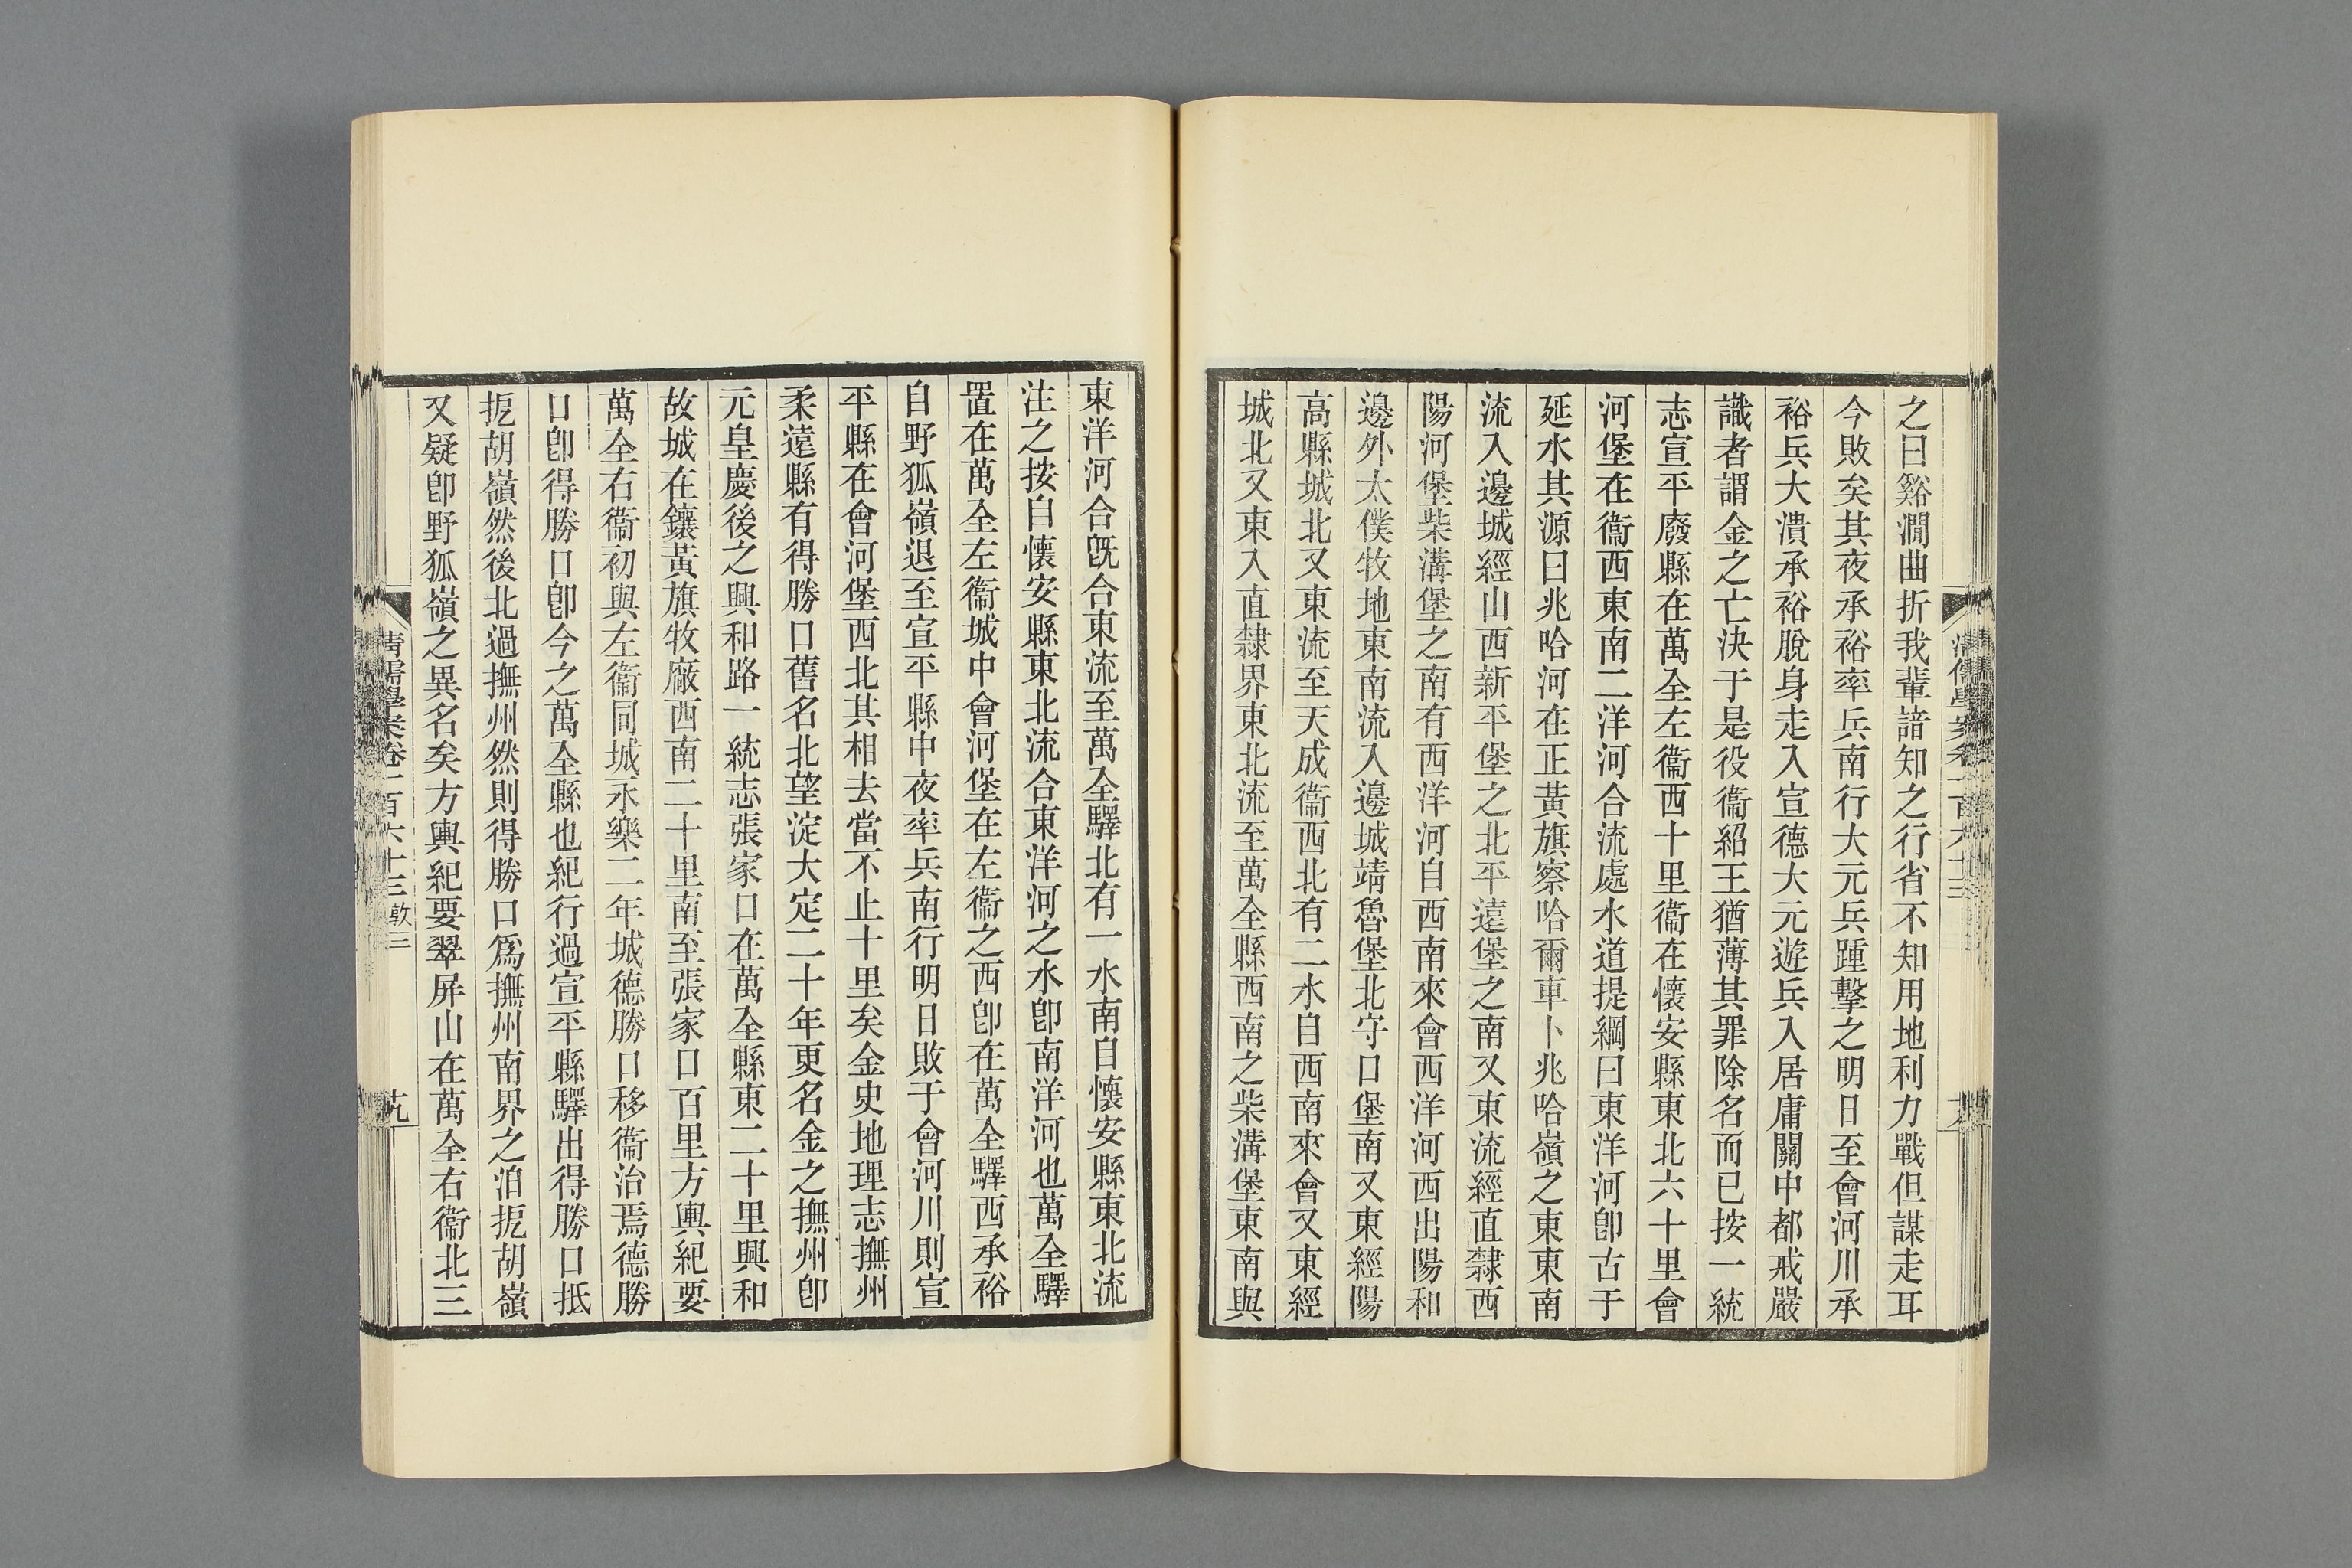 之曰谿澗曲折我輩諳知之行省不知用地利力戰但謀走耳
今敗矣其夜承裕率兵南行大元兵踵擊之明日至會河川承
裕兵大潰承裕脫身走入宣德大元遊兵入居庸關中都戒嚴
識者謂金之亡決于是役衞紹王猶薄其罪除名而已按一統
志宣平廢縣在萬全左衞西十里衞在懷安縣東北六十里會
河堡在衞西東南二洋河合流處水道提綱曰東洋河卽古于
延水其源曰兆哈河在正黃旗察哈爾車卜兆哈嶺之東東南
流入邊城經山西新平堡之北平遠堡之南又東流經直隸西
陽河堡柴溝堡之南有西洋河自西南來會西洋河西出陽和
邊外太僕牧地東南流入邊城靖魯堡北守口堡南又東經陽
高縣城北又東流至天成衞西北有二水自西南來會又東經
城北又東入直隸界東北流至萬全縣西南之柴溝堡東南與
東洋河合旣合東流至萬全驛北有一水南自懷安縣東北流
注之按自懷安縣東北流合東洋河之水卽南洋河也萬全驛
置在萬全左衞城中會河堡在左衞之西卽在萬全驛西承裕
自野狐嶺退至宣平縣中夜率兵南行明日敗于會河川則宣
平縣在會河堡西北其相去當不止十里矣金史地理志撫州
柔遠縣有得勝口舊名北望淀大定二十年更名金之撫州卽
元皇慶後之興和路一統志張家口在萬全縣東二十里興和
故城在鑲黃旗牧廠西南二十里南至張家口百里方輿紀要
萬全右衞初與左衞同城永樂二年城德勝口移衞治焉德勝
口卽得勝口卽今之萬全縣也紀行過宣平縣驛出得勝口抵
扼胡嶺然後北過撫州然則得勝口爲撫州南界之洎扼胡嶺
又疑卽野狐嶺之異名矣方輿紀要翠屏山在萬全右衞北三
清儒學案卷一百六十三 敦三
十九